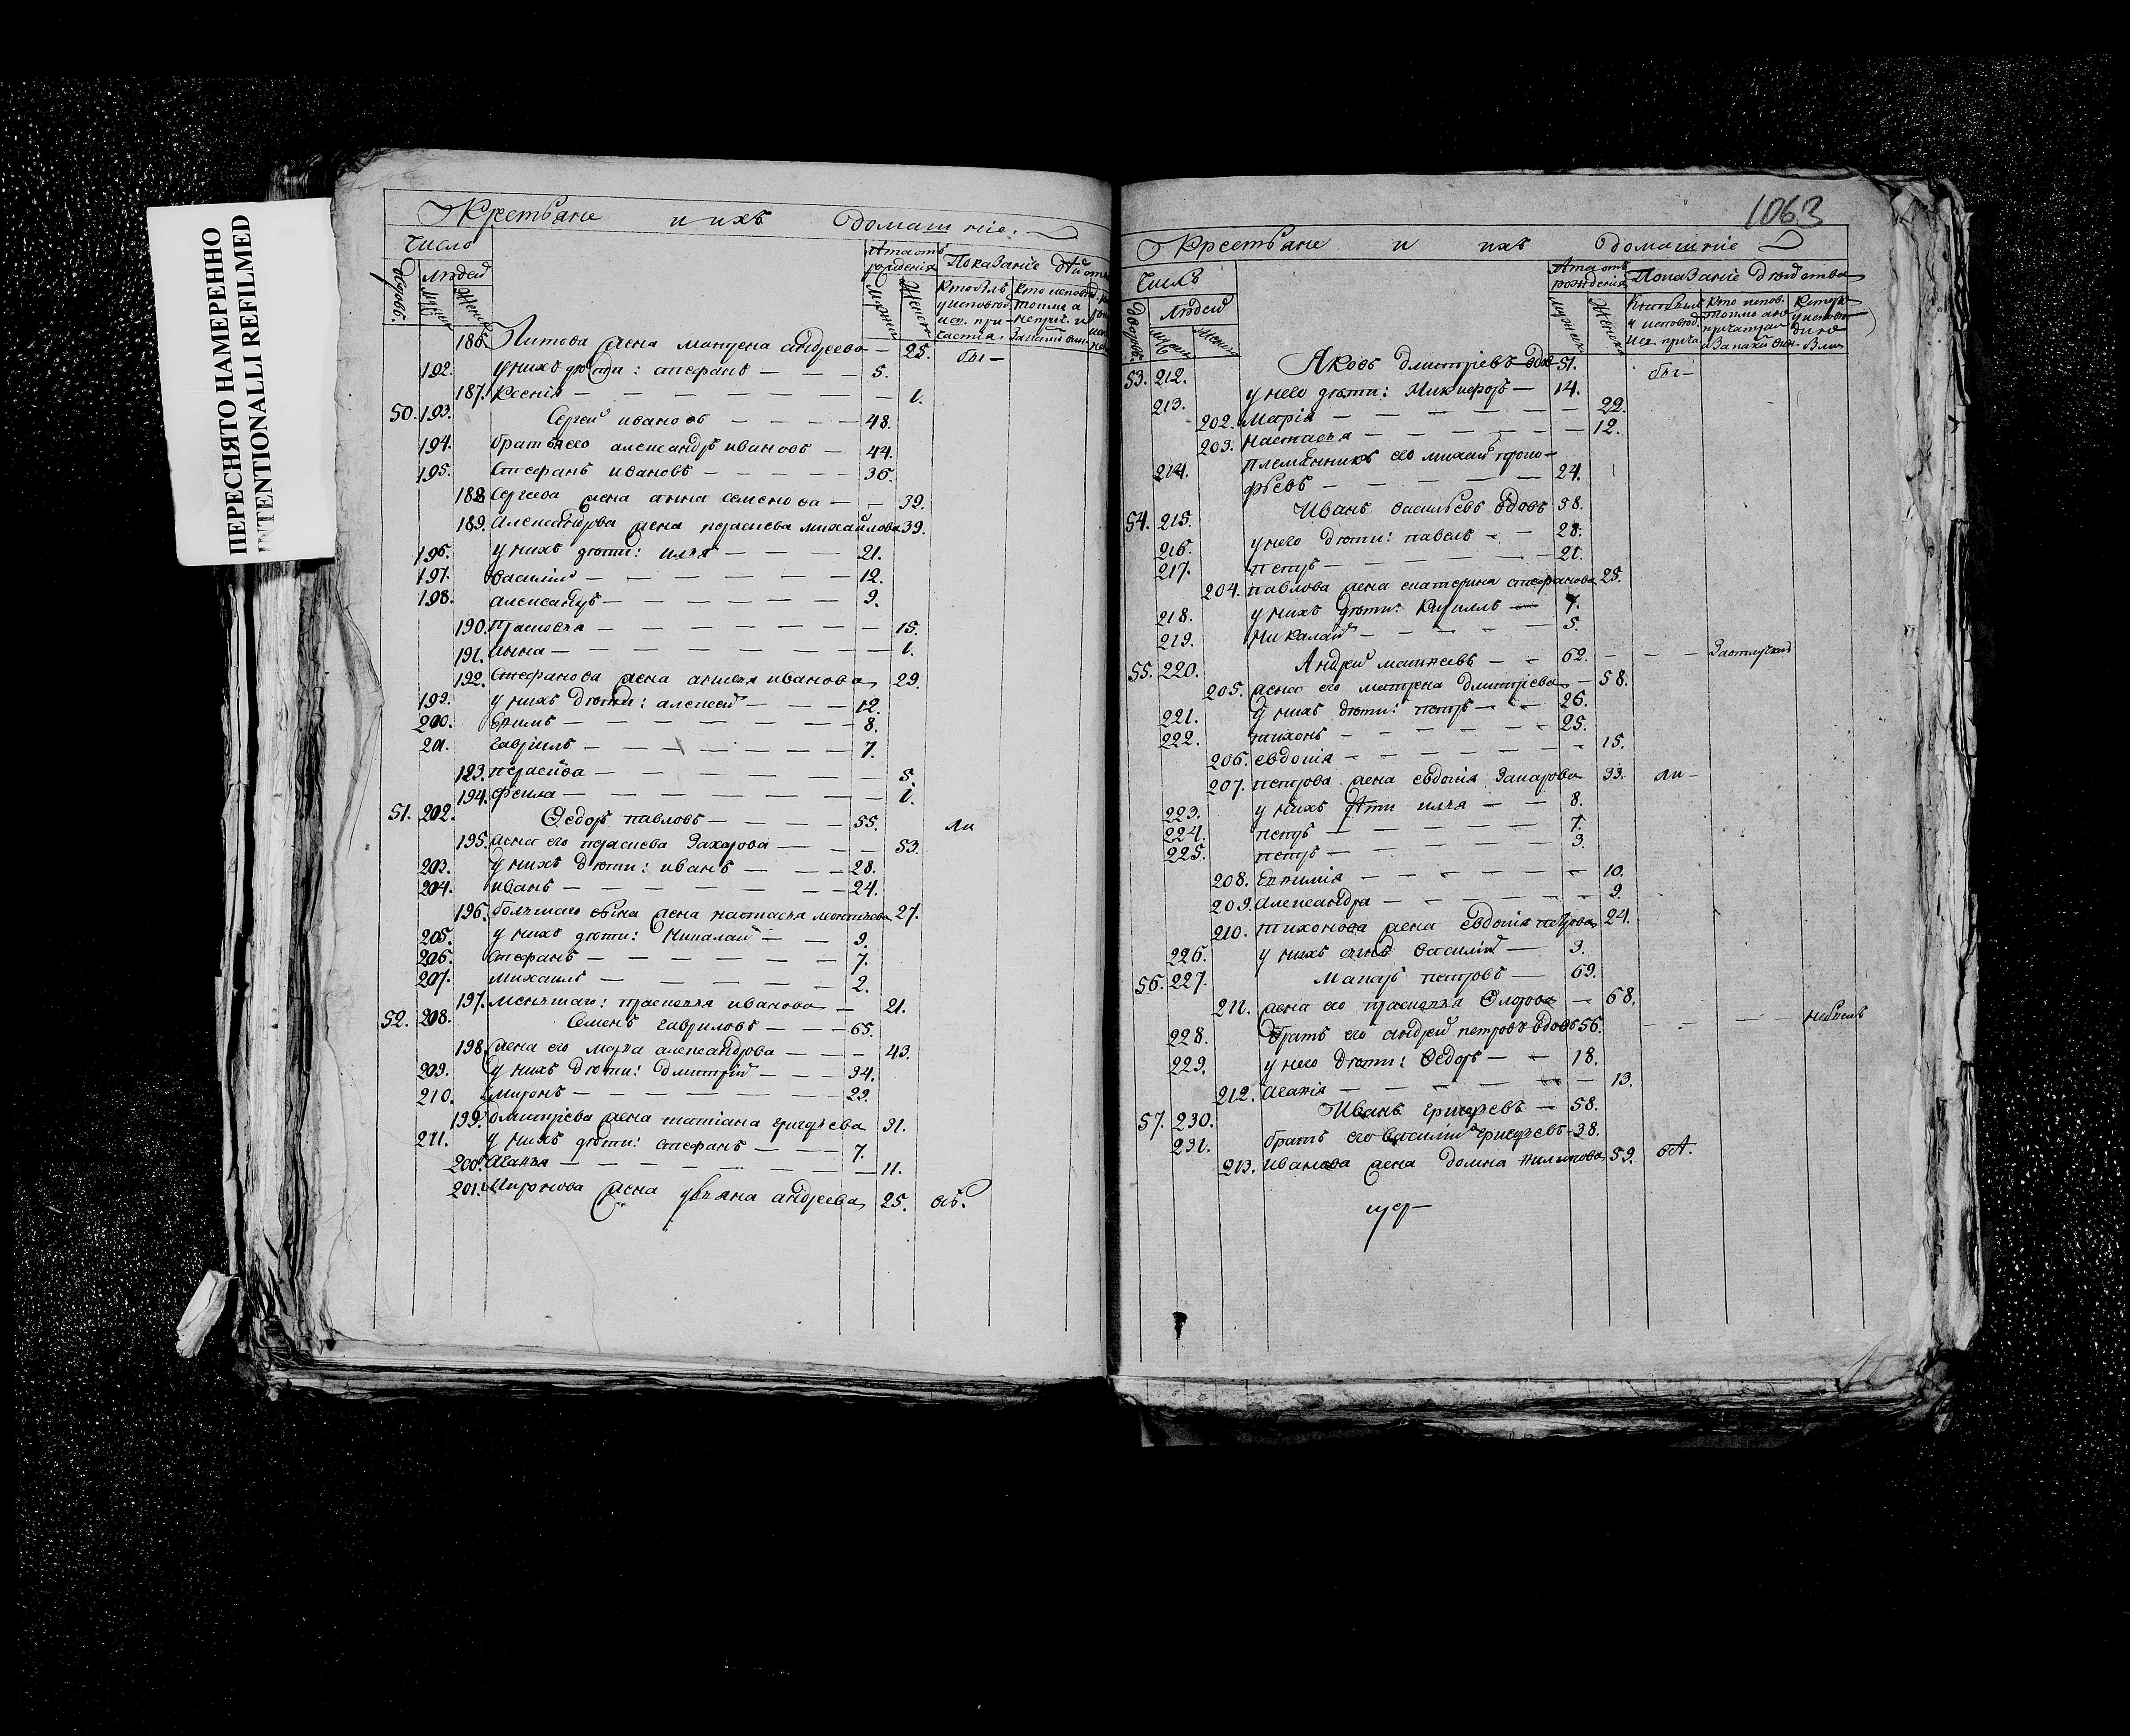 ПЕРЕСНЯТО НАМЕРЕННО
INTENTIONALLI REFILMED
Крестьяне и ихъ домашніе.
Число
Лѣта отъ рожденія
Показаніе
дворовъ.
людей
мужеск
женск
мужеск
женск
186. Титова жена Матрена андреева — 25. бы —
192. у нихъ дѣти: стефанъ — — — 5.
187. Ксенія — — — — — — — 1.
50. 193. Сергей ивановъ — — — — 48.
194. братья его александръ ивановъ — 44.
195. Стефанъ ивановъ — — — — 36.
188. Сергеева жена анна семенова — — 39.
189. Александрова жена параскева михайлова 39.
196. у нихъ дѣти: илья — — — 21.
197. василій — — — — — — 12.
198. александръ — — — — — — 9.
190. прасковья — — — — — — — 15.
191. анна — — — — — — — — 1.
192. Стефанова жена иванова 29.
199. у нихъ дѣти: алексей — — — 12.
200. — — — — — — — 8.
201. гавріилъ — — — — — — 7.
123. параскева — — — — — — — 5.
194. фекла — — — — — — — 1.
51. 202. Ѳедоръ павловъ — — — — 55. ли
195. жена его параскева Захарова — — — 53.
203. у нихъ дѣти: иванъ — — — 28.
204. иванъ — — — — — — — 24.
196. большаго сына жена настасья 27.
205. у нихъ дѣти: Николай — — 9.
206. стефанъ — — — — — — 7.
207. михаилъ — — — — — — 2.
197. меньшаго: прасковья иванова — 21.
52. 208. Семенъ гавриловъ — — — 65.
198. жена его марѳа александрова — — — 43.
209. у нихъ дѣти: дмитрій — — — 34.
210. миронъ — — — — — — — 29.
199. дмитріева жена татіана григорьева 31.
211. у нихъ дѣти: стефанъ — — — 7.
200. Агафья — — — — — — — 11.
201. Миронова жена ульяна андреева 25.
1063
Крестьяне и ихъ домашніе
Числъ
Лѣта отъ рожденія
Показаніе дѣйства
дворовъ.
людей
мужеск
женск
мужеск
женск
53. 212. Яковъ дмитріевъ вдов 51. бы —
213. у него дѣти: Никифоръ — 14.
202. Марія — — — — — — 22.
203. Настасья — — — — — — 12.
214. племянникъ его михаил
фьевъ — — — — — — 24.
54. 215. Иванъ васильевъ вдовъ 58.
216. у него дѣти: павелъ — — 28.
217. петръ — — — — — — 21.
204. павлова жена екатерина стефанова 25.
218. у нихъ дѣти: Кириллъ — 7.
219. николай — — — — — 5.
55. 220. Андрей матѳеевъ — — 62. — — — Заотлучкой
205. жена его матрена дмитріева — 58.
221. у нихъ дѣти: петръ — — 26.
222. тихонъ — — — — — — 25.
206. евдокія — — — — — — 15.
207. петрова жена евдокія Захарова 33. ли —
223. у нихъ дѣти илья — — 8.
224. петръ — — — — — 7.
225. петръ — — — — — 3.
208. Ефимія — — — — — — 10.
209. Александра — — — — — — 9.
210. тихонова жена евдокія петрова 24.
226. у нихъ сынъ василій — 3.
56. 227. Макаръ петровъ — 69.
211. жена его прасковья Ѳедорова — 68.
228. братъ его андрей петровъ вдовъ 56. — — — небылъ
229. у него дѣти: Ѳедоръ — — 18.
212. Агафія — — — — — — 13.
57. 230. Иванъ григорьевъ — 58.
231. братъ его василій григорьевъ — 38.
213. иванова жена домна филипова 59.